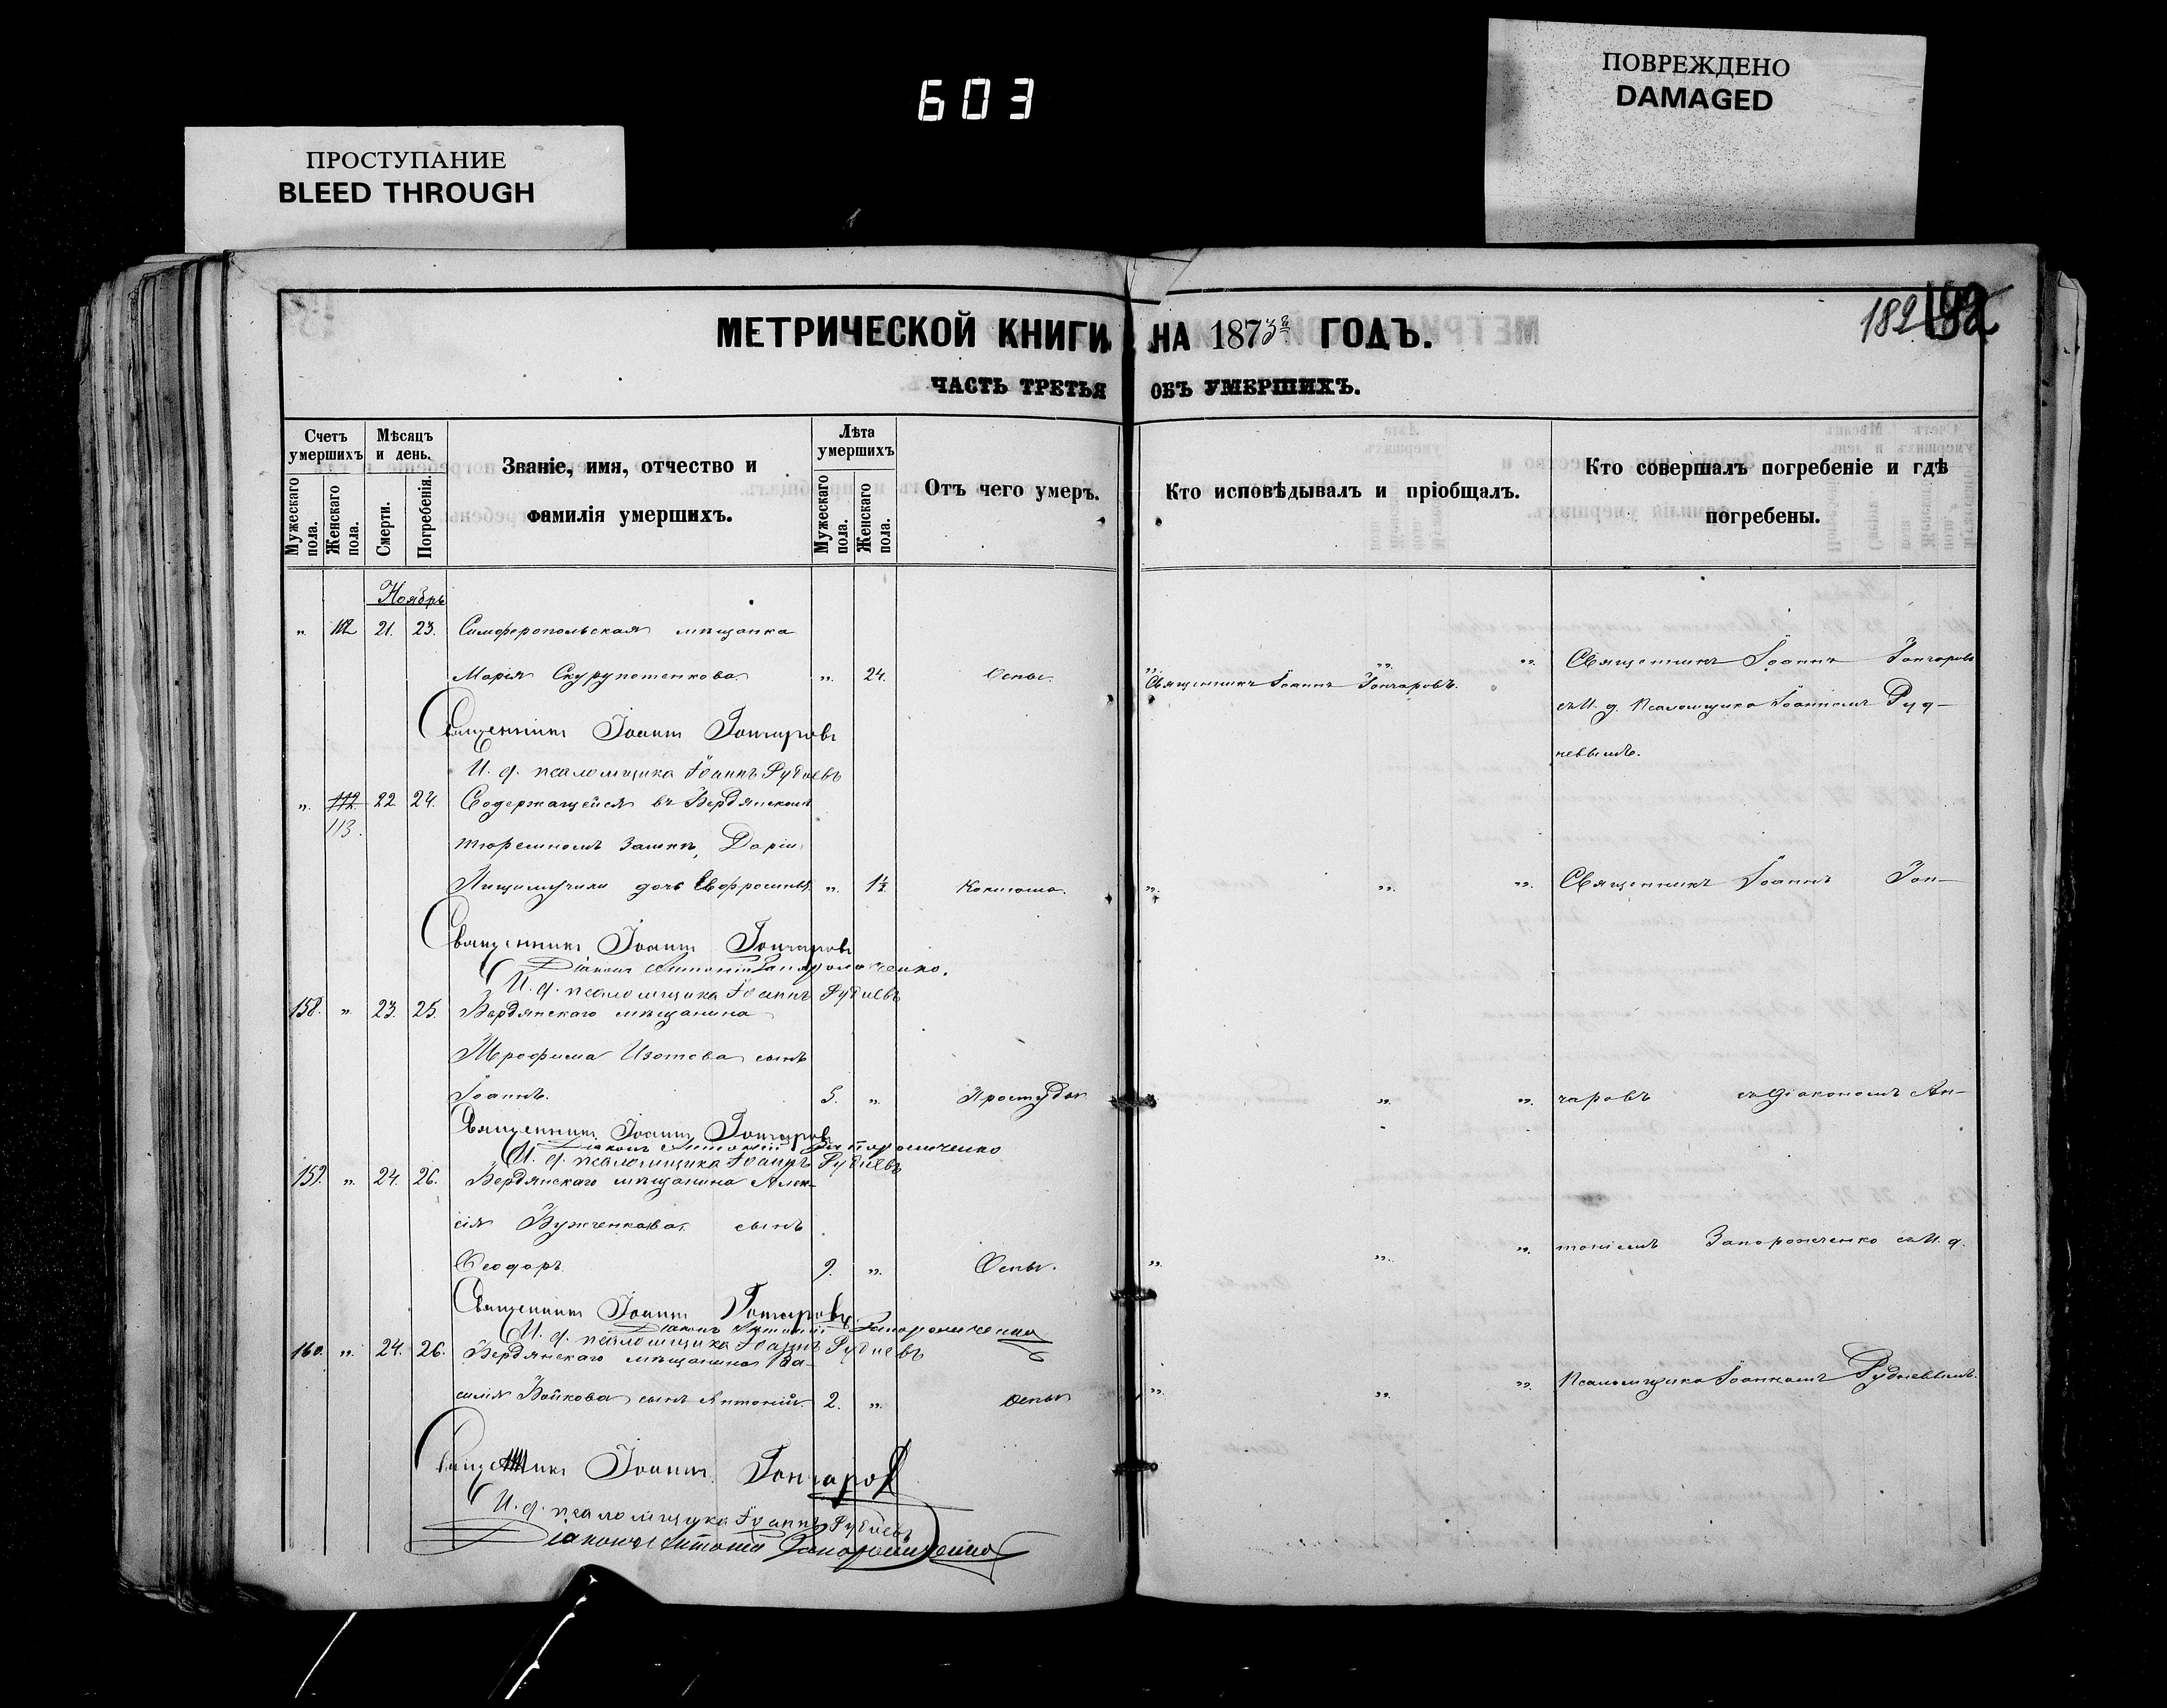 603
ПРОСТУПАНИЕ
BLEED THROUGH
ПОВРЕЖДЕНО
DAMAGED
182
МЕТРИЧЕСКОЙ КНИГИ НА 1873й ГОДЪ.
ЧАСТЬ ТРЕТЬЯ ОБЪ УМЕРШИХЪ.
Счетъ умершихъ
Мужескаго пола.
Женскаго пола.
Мѣсяцъ и день.
Смерти.
Погребенія.
Званіе, имя, отчество и
фамилія умершихъ.
Лѣта умершихъ
Мужескаго пола.
Женскаго пола.
Отъ чего умеръ.
Кто исповѣдывалъ и пріобщалъ.
Кто совершалъ погребеніе и гдѣ
погребены.
Ноябрь
„ 112 21. 23. Симферопольская мѣщанка
Марія „ 24. Оспы.
Священникъ Іоаннъ Гончаровъ.
Священникъ Іоаннъ Гончаровъ
съ И. д. Псаломщика Іоанномъ Руд-
невымъ.
Священникъ Іоаннъ Гончаровъ
И. д. псаломщика Іоаннъ Рудневъ
„ 112 22 24. Содержащейся въ Бердянскомъ
113.
тюремномъ замкѣ, Даріи
дочь Евфросинія „ 1½ „ „ „ Священникъ Іоаннъ Гон-
Священникъ Іоаннъ Гончаровъ
Діаконъ Антоній Запорожченко.
И. д. псаломщика Іоаннъ Рудневъ
158. „ 23. 25. Бердянскаго мѣщанина
Трофима Изотова сынъ
Іоаннъ. 5. „ Простуды „ „ чаровъ съ Діакономъ Ан-
Священникъ Іоаннъ Гончаровъ
Діаконъ Антоній Запорожченко
И. д. псаломщика Іоаннъ Рудневъ
159. „ 24. 26. Бердянскаго мѣщанина Алек-
сія сынъ
Ѳеодоръ 9. „ Оспы. „ „ „ тоніемъ Запорожченко съ И. д.
Священникъ Іоаннъ Гончаровъ
Діаконъ Антоній Запорожченко
И. д. псаломщика Іоаннъ Рудневъ
160. „ 24. 26. Бердянскаго мѣщанина Ва-
силія Бойкова сынъ Антоній. 2. „ Оспы „ „ „ Псаломщика Іоанномъ Рудневымъ.
Священникъ Іоаннъ Гончаровъ
И. д. псаломщика Іоаннъ Рудневъ
Діаконъ Антоній Запорожченко